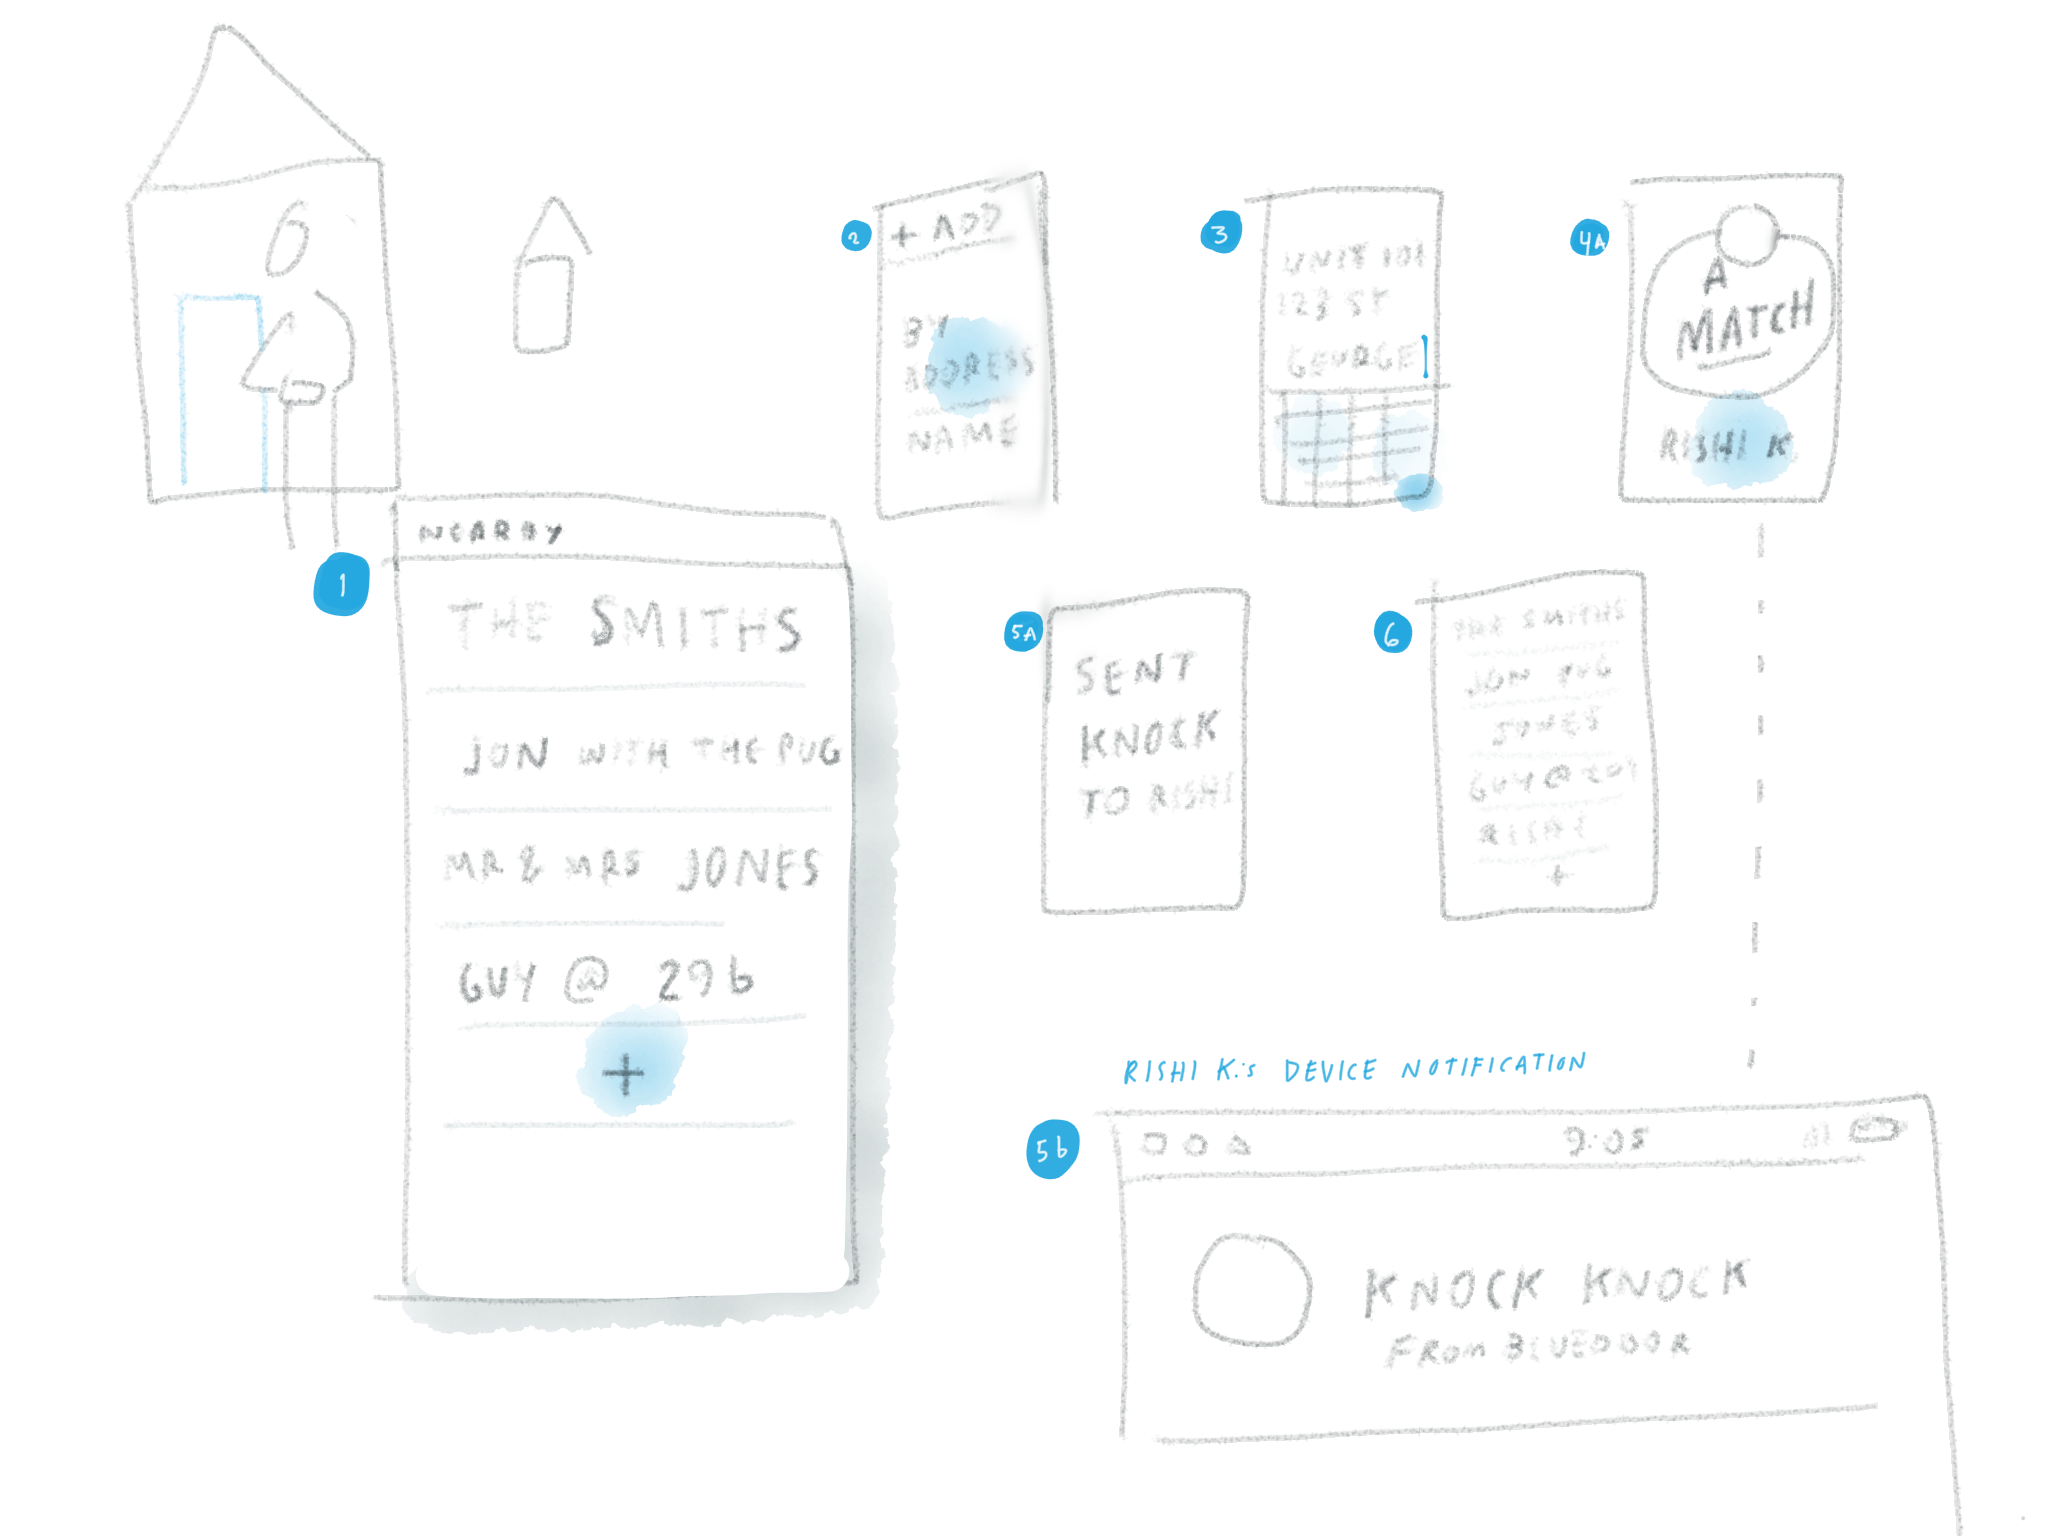 1
NEARBY
THE SMITHS
JON WITH THE PUG
MR & MRS JONES
GUY @ 29b
+
2
+ ADD
BY
ADDRESS
NAME
3
UNIT 101
123 ST
GEORGE
4A
A
MATCH
RISHI K
5A
SENT
KNOCK
TO RISHI
6
THE SMITHS
JON PUG
JONES
GUY @ 29
RISHI
+
RISHI K.'s DEVICE NOTIFICATION
5b
9:05
KNOCK KNOCK
FROM BLUEDOOR